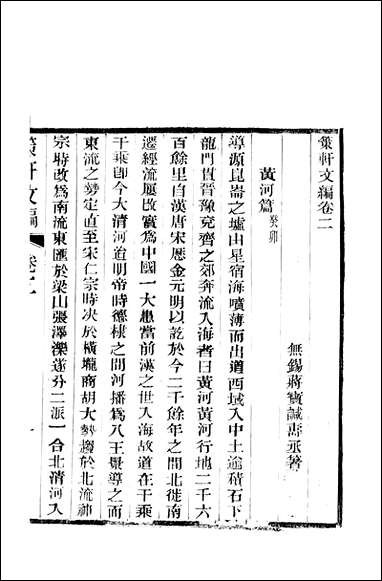 箂軒文編卷二
無錫蔣寶諴壽丞著
黃河篇 癸卯
導源昆崙之墟由星宿海噴薄而出道西域入中土逾積石下
龍門亙晉豫兗齊之郊奔流入海者曰黃河黃河行地二千六
百餘里自漢唐宋歷金元明以訖於今二千餘年之間北徙南
遷經流屢改實爲中國一大患當前漢之世入海故道在千乘
千乘卽今大清河道明帝時德棣之間河播爲八王景導之而
東流之勢定直至宋仁宗時決於橫壠商胡大勢趨於北流神
宗時改爲南流東匯於梁山張澤濼遂分二派一合北清河入
箂軒文編
卷二
一